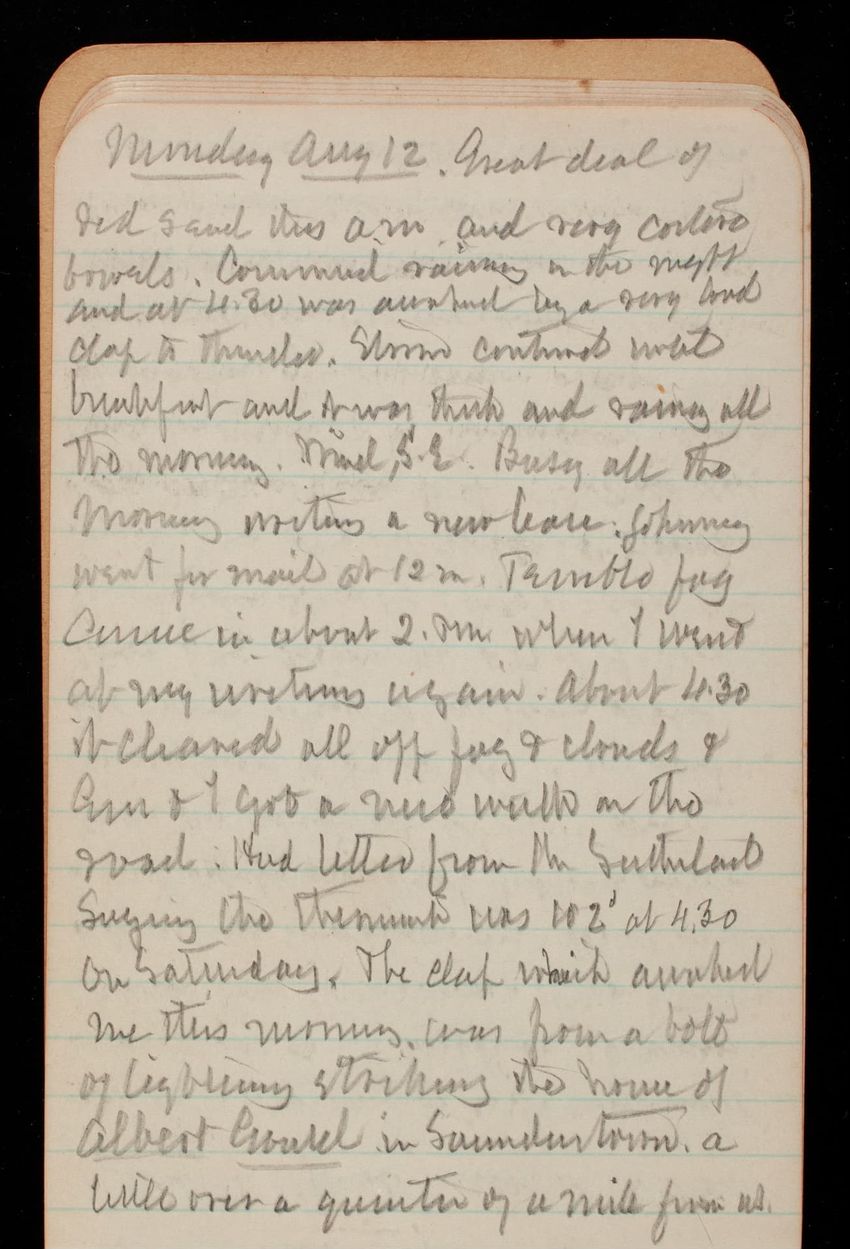 Monday Aug 12. Great deal of
red sand this a m and very costive
bowels. Commenced raining in the night
and at 4.30 was awaked by a very loud
clap of thunder. Storm continued until
breakfast and it was thick and rainy all
the morning. Wind S.E. Busy all the
Morning writing a new lease. Johnney
went for mail at 12 m. Terrible fog
Came in about 2. P.m. when I went
at my writing again. About 4.30
it cleared all off fog & clouds &
& I got a nice walk on the
road. Had letter from Mr Sutherland
Saying the was 102° at 4.30
On Saturday. The clap which awaked
me this morning, was from a bolt
of lightning striking the house of
Albert in Saunderstown. a
little over a quarter of a mile from us.